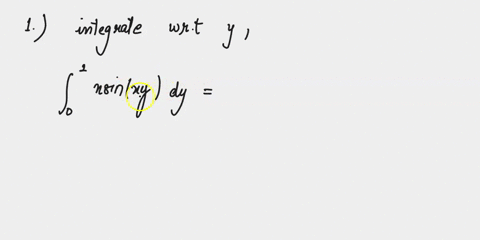 1.) integrate w.r.t y,
∫₀¹ xsin(xy) dy =